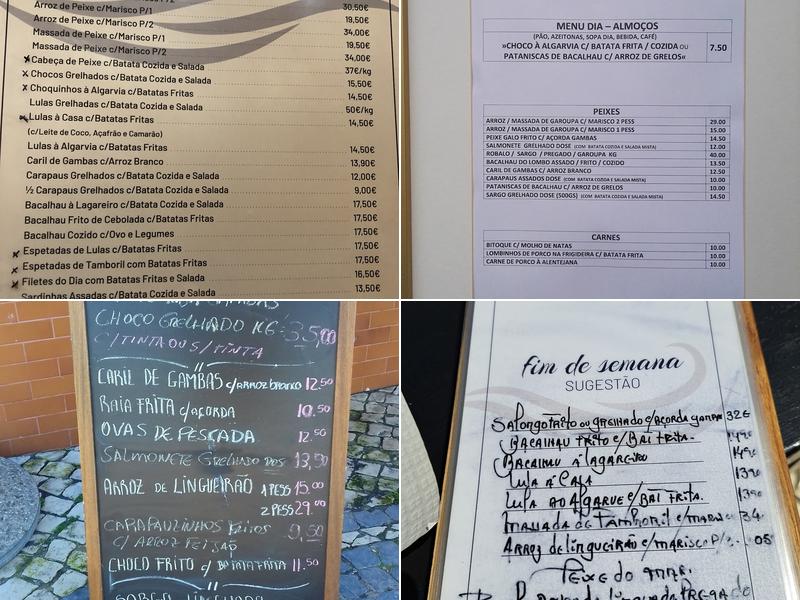 Arroz de Peixe c/Marisco P/1 30,50€
Arroz de Peixe c/Marisco P/2 19,50€
Massada de Peixe c/Marisco P/1 34,00€
Massada de Peixe c/Marisco P/2 19,50€
Cabeça de Peixe c/Batata Cozida e Salada 34,00€
Chocos Grelhados c/Batata Cozida e Salada 37€/kg
Choquinhos à Algarvia c/Batatas Fritas 15,50€
Lulas Grelhadas c/Batata Cozida e Salada 14,50€
Lulas à Casa c/Batatas Fritas 50€/kg
(c/Leite de Coco, Açafrão e Camarão) 14,50€
Lulas à Algarvia c/Batatas Fritas 14,50€
Caril de Gambas c/Arroz Branco 13,90€
Carapaus Grelhados c/Batata Cozida e Salada 12,00€
½ Carapaus Grelhados c/Batata Cozida e Salada 9,00€
Bacalhau à Lagareiro c/Batata Cozida 17,50€
Bacalhau Frito de Cebolada c/Batatas Fritas 17,50€
Bacalhau Cozido c/Ovo e Legumes 17,50€
Espetadas de Lulas c/Batatas Fritas 17,50€
Espetadas de Tamboril com Batatas Fritas 17,50€
Filetes do Dia com Batatas Fritas e Salada 16,50€
Sardinhas Assadas c/Batata Cozida e Salada 13,50€
MENU DIA – ALMOÇOS
(PÃO, AZEITONAS, SOPA DIA, BEBIDA, CAFÉ)
»CHOCO À ALGARVIA C/ BATATA FRITA / COZIDA OU 7.50
PATANISCAS DE BACALHAU C/ ARROZ DE GRELOS«
PEIXES
ARROZ / MASSADA DE GAROUPA C/ MARISCO 2 PESS 29.00
ARROZ / MASSADA DE GAROUPA C/ MARISCO 1 PESS 15.00
PEIXE GALO FRITO C/ AÇORDA GAMBAS 14.50
SALMONETE GRELHADO DOSE (COM BATATA COZIDA E SALADA MISTA) 12.00
ROBALO / SARGO / PREGADO / GAROUPA KG 40.00
BACALHAU DO LOMBO ASSADO / FRITO / COZIDO 13.50
CARIL DE GAMBAS C/ ARROZ BRANCO 12.50
CARAPAUS ASSADOS DOSE (COM BATATA COZIDA E SALADA MISTA) 10.00
PATANISCAS DE BACALHAU C/ ARROZ DE GRELOS 10.00
SARGO GRELHADO DOSE (500GS) (COM BATATA COZIDA E SALADA MISTA) 14.50
CARNES
BITOQUE C/ MOLHO DE NATAS 10.00
LOMBINHOS DE PORCO NA FRIGIDEIRA C/ BATATA FRITA 10.00
CARNE DE PORCO À ALENTEJANA 10.00
CHOCO GRELHADO KG: 35,00
C/TINTA OU S/TINTA
CARIL DE GAMBAS c/ARROZ branco 12.50
RAIA FRITA c/açorda 10.50
OVAS DE PESCADA 12.50
SALMONETE GRELHADO DOS 13,50
ARROZ DE LINGUEIRÃO 1 PESS 15.00
2 PESS 29.00
CARAPAUZINHOS FRITOS 9,50
C/ ARROZ FEIJÃO
CHOCO FRITO c/ BATATA FRITA 11.50
fim de semana
SUGESTÃO
frito ou grelhado c/açorda 32€
Bacalhau Frito c/ Bat Frita.
Bacalhau à lagareiro
Lula à Casa
Lula ao Algarve c/ Bat Frita.
Massada de Tamboril c/ 34
Arroz de lingueirão c/ marisco P/
Peixe do